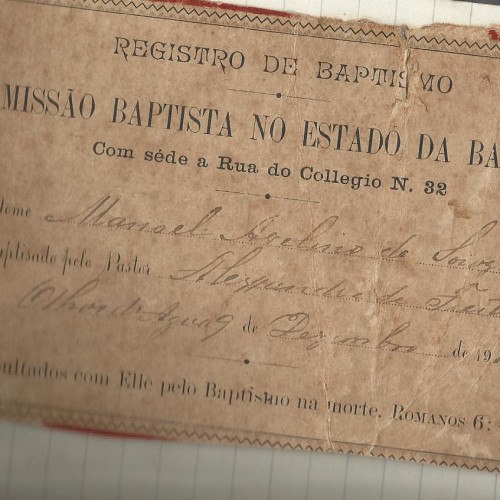 REGISTRO DE BAPTISMO
MISSÃO BAPTISTA NO ESTADO DA BA
Com séde a Rua do Collegio N. 32
Nome Manoel Avelino de Souz
aptisado pelo Pastor Alexandre de Frei
Olhos d'Agua 9 de Dezembro de 19
pultados com Elle pelo Baptismo na morte. ROMANOS 6: